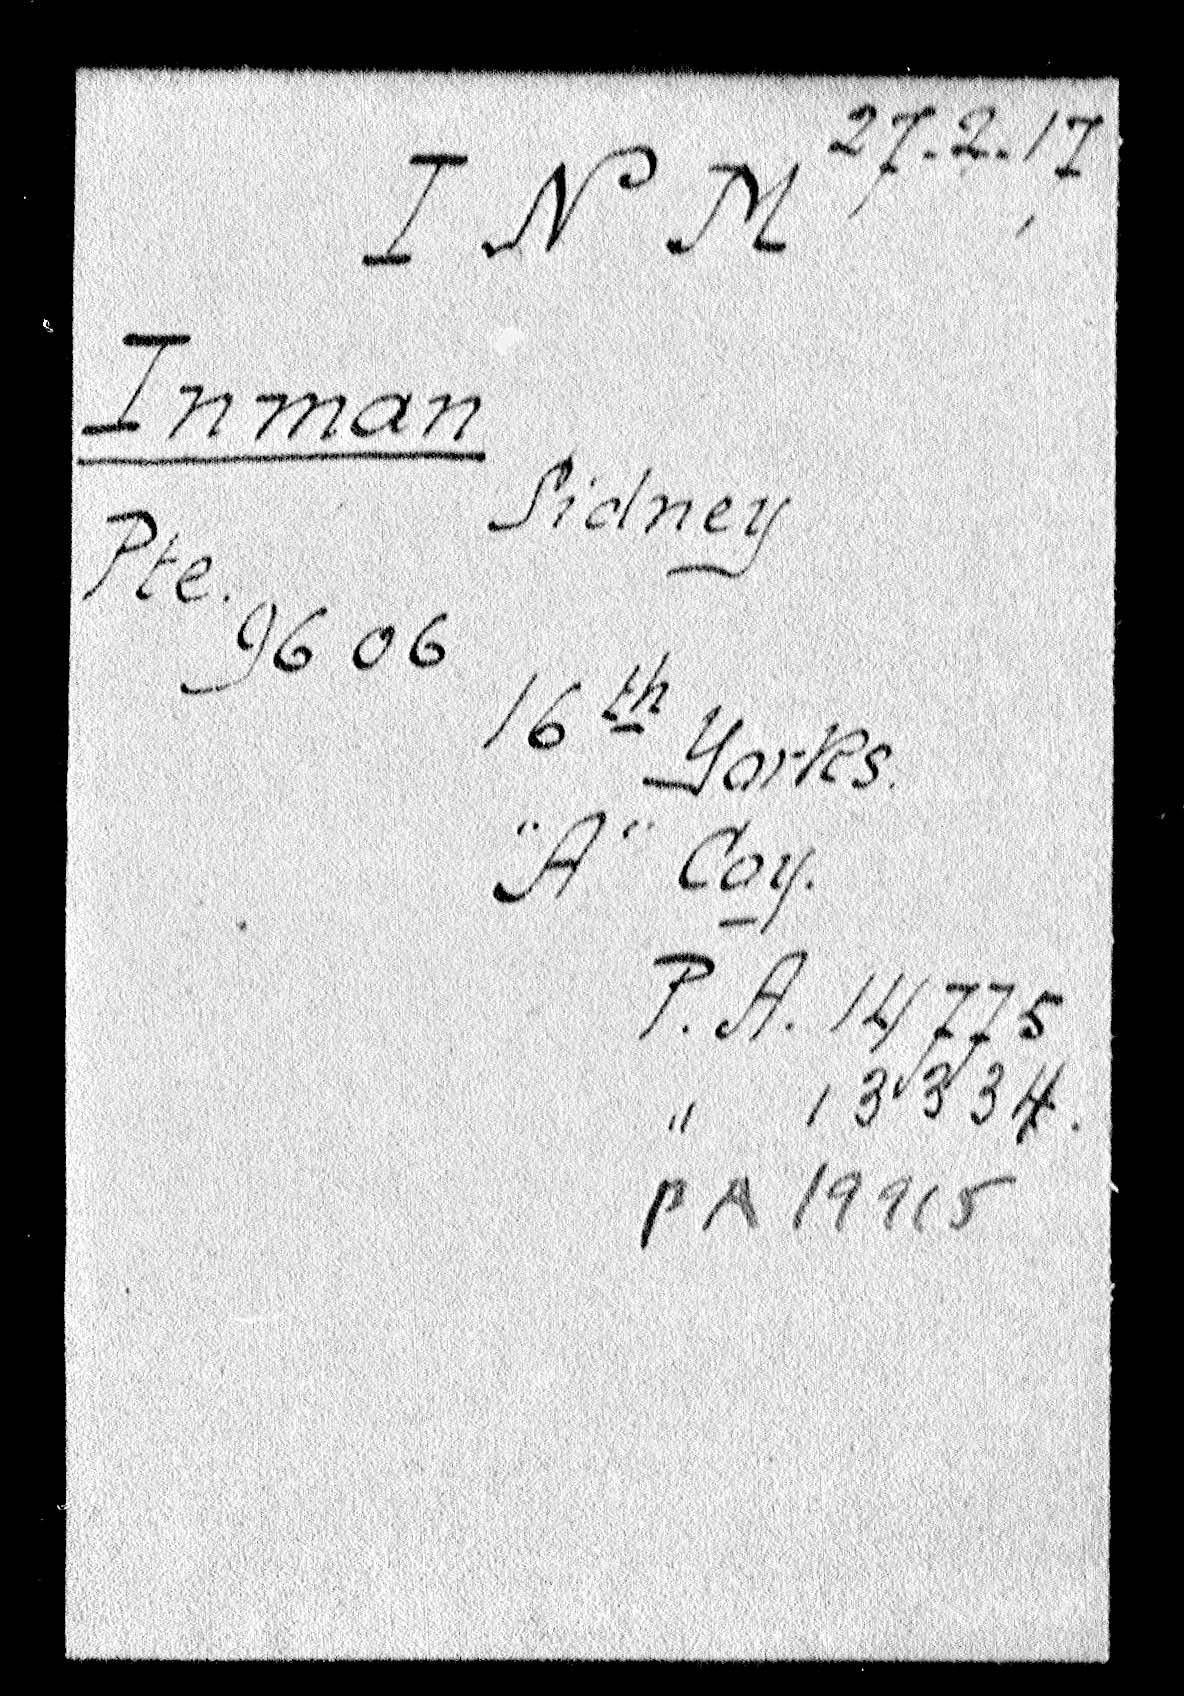 27.2.17
I N M
Inman
Sidney
Pte.
9606
16th Yorks.
"A" Coy.
P.A. 14775
" 13334.
PA 19915